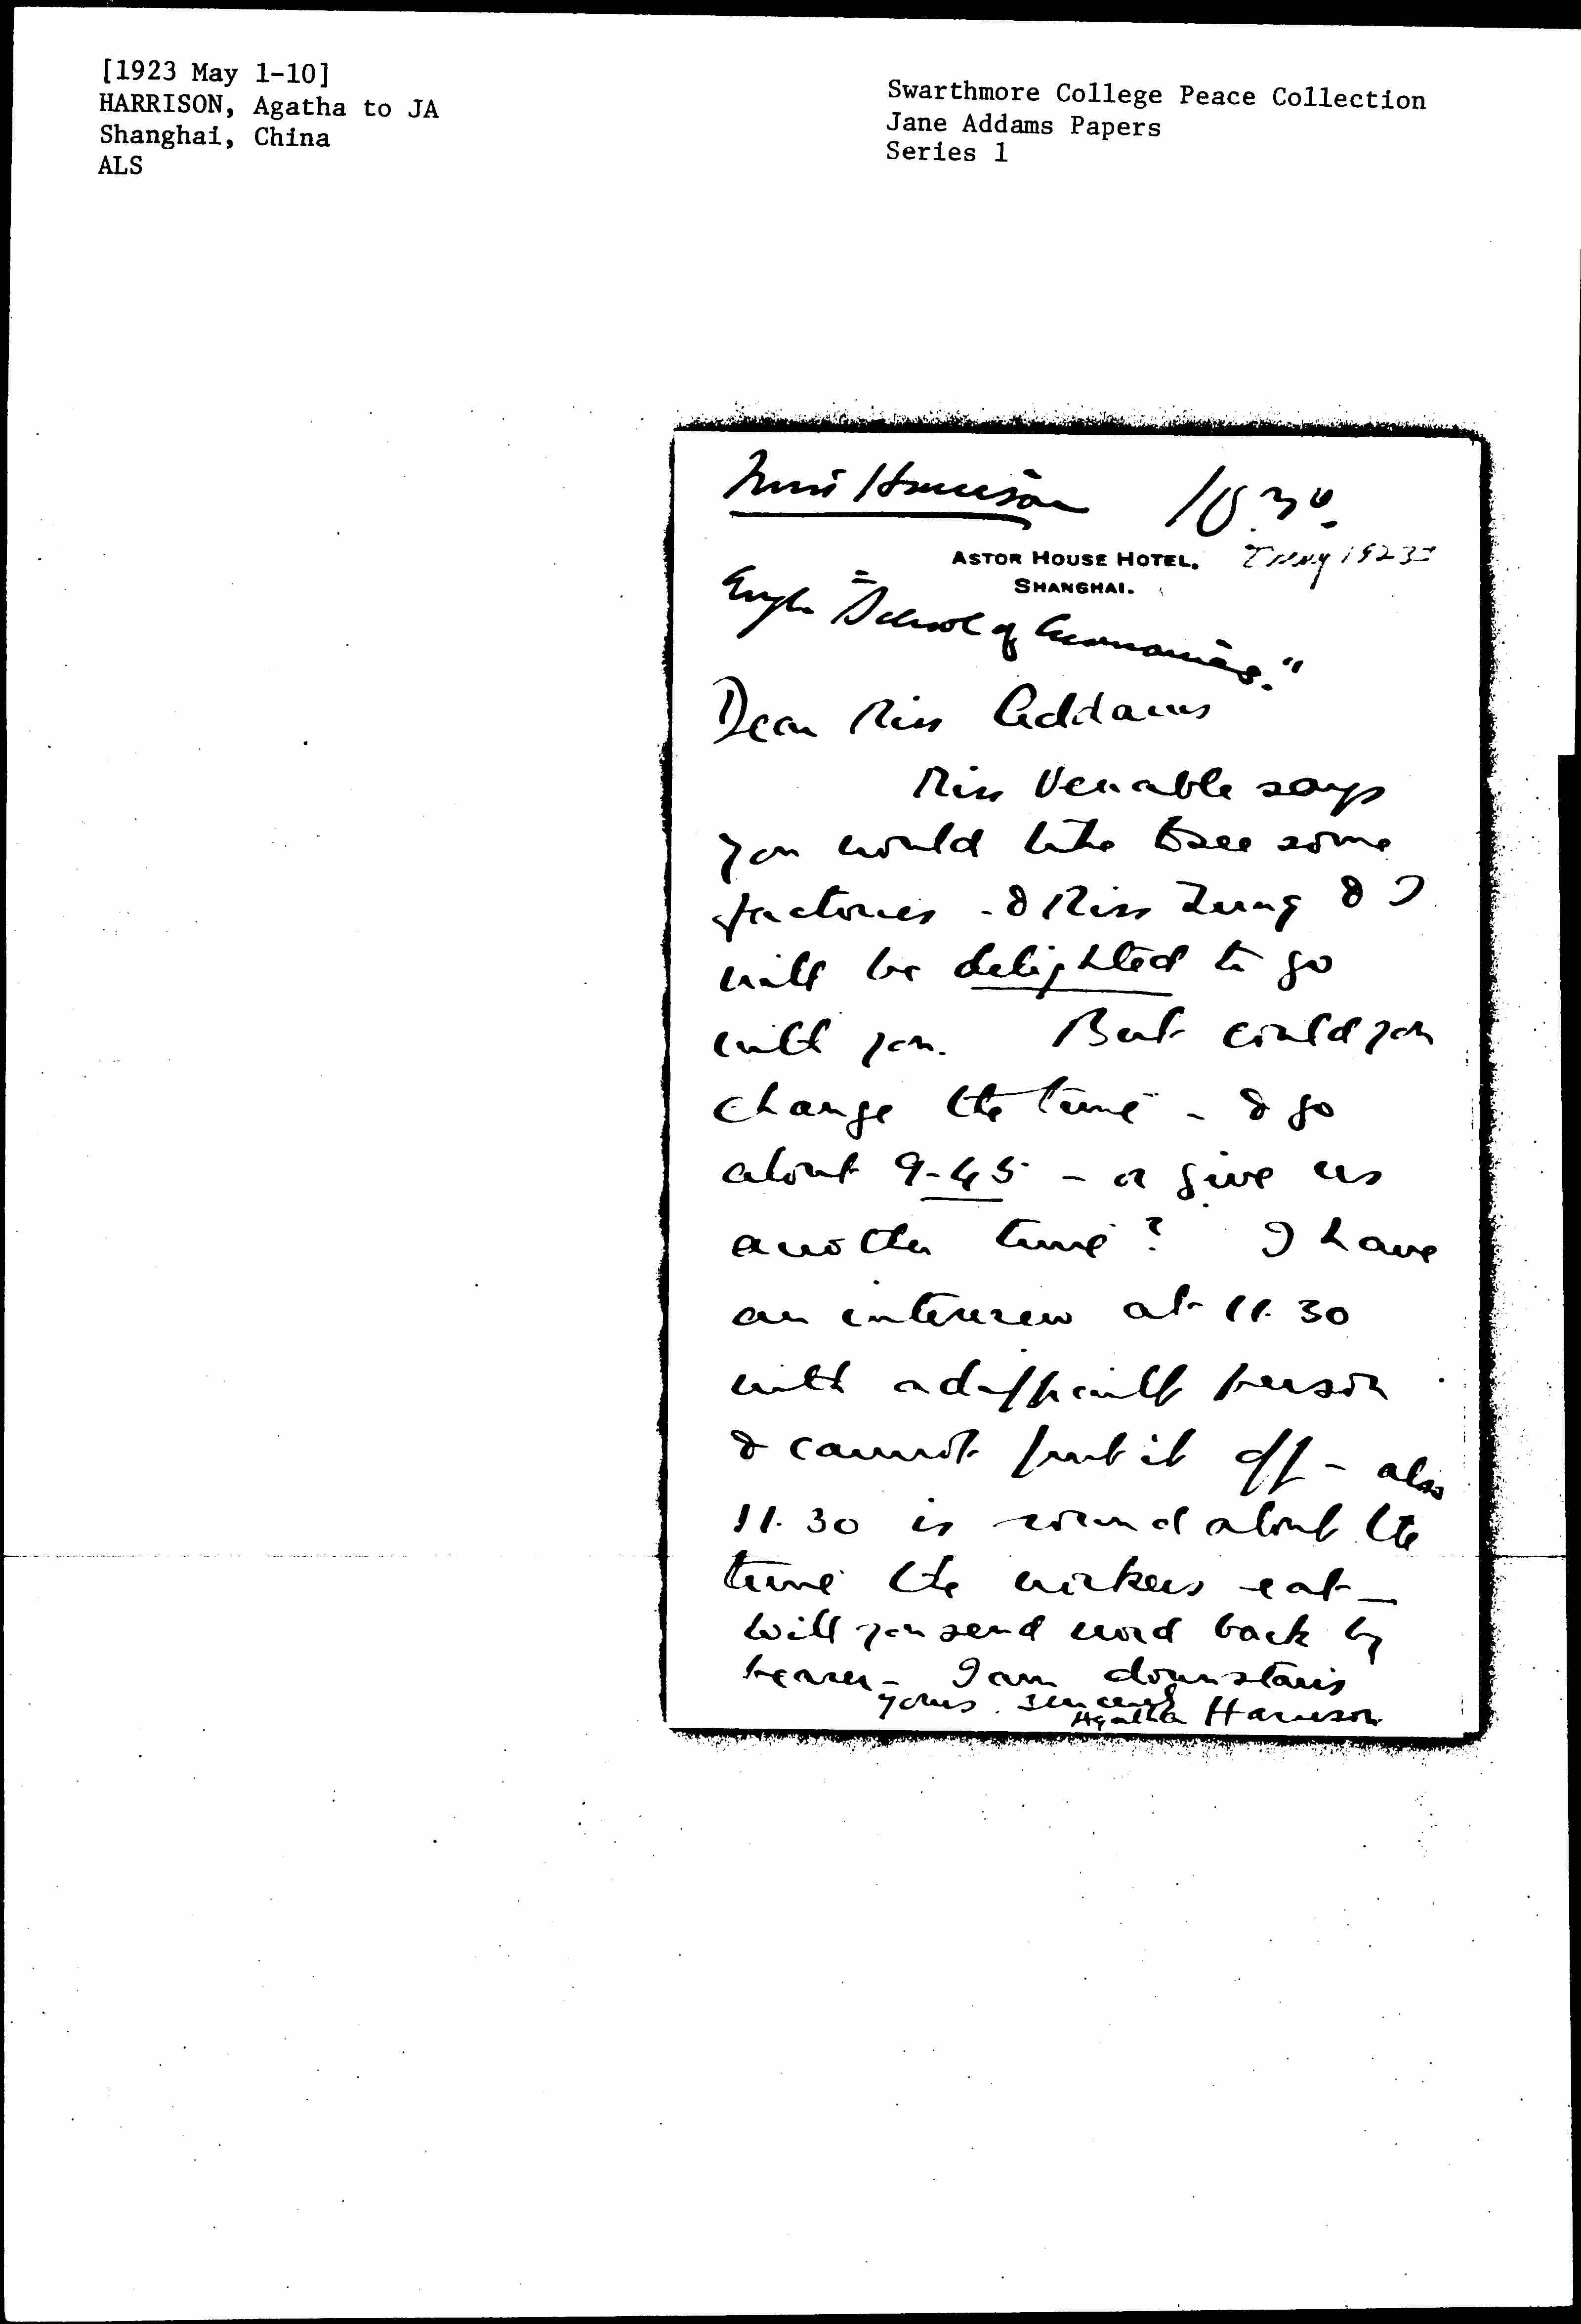 [1923 May 1-10]
HARRISON, Agatha to JA
Shanghai, China
ALS
Swarthmore College Peace Collection
Jane Addams Papers
Series 1
Miss Harrison 10.30
ASTOR HOUSE HOTEL.
SHANGHAI.
May 1923
"School of Economics."
Dear Miss Addams
Miss Venable says
you would like to see some
factories - & Miss Zung & I
will be delighted to go
with you. But could you
change the time - & go
about 9-45 - or give us
another time? I have
an interview at 11.30
with a difficult person
& cannot put it off - also
11.30 is round about the
time the workers eat -
Will you send word back by
bearer - I am downstairs
Yours sincerely
Agatha Harrison